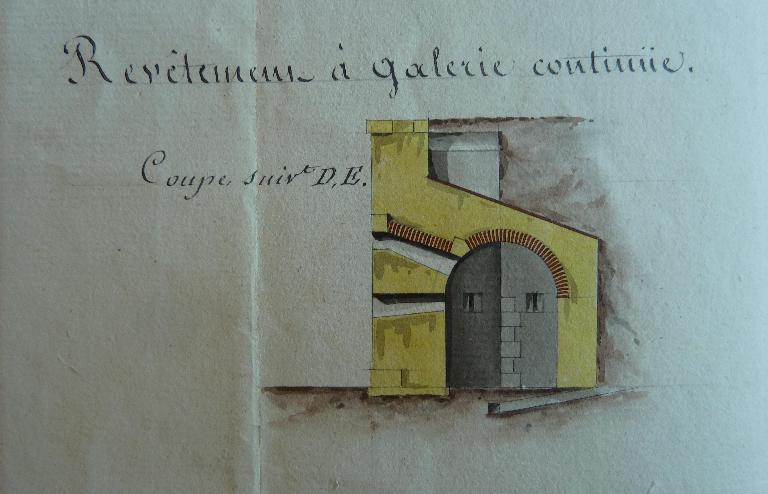 Revêtement à galerie continüe.
Coupe suivt D, E.